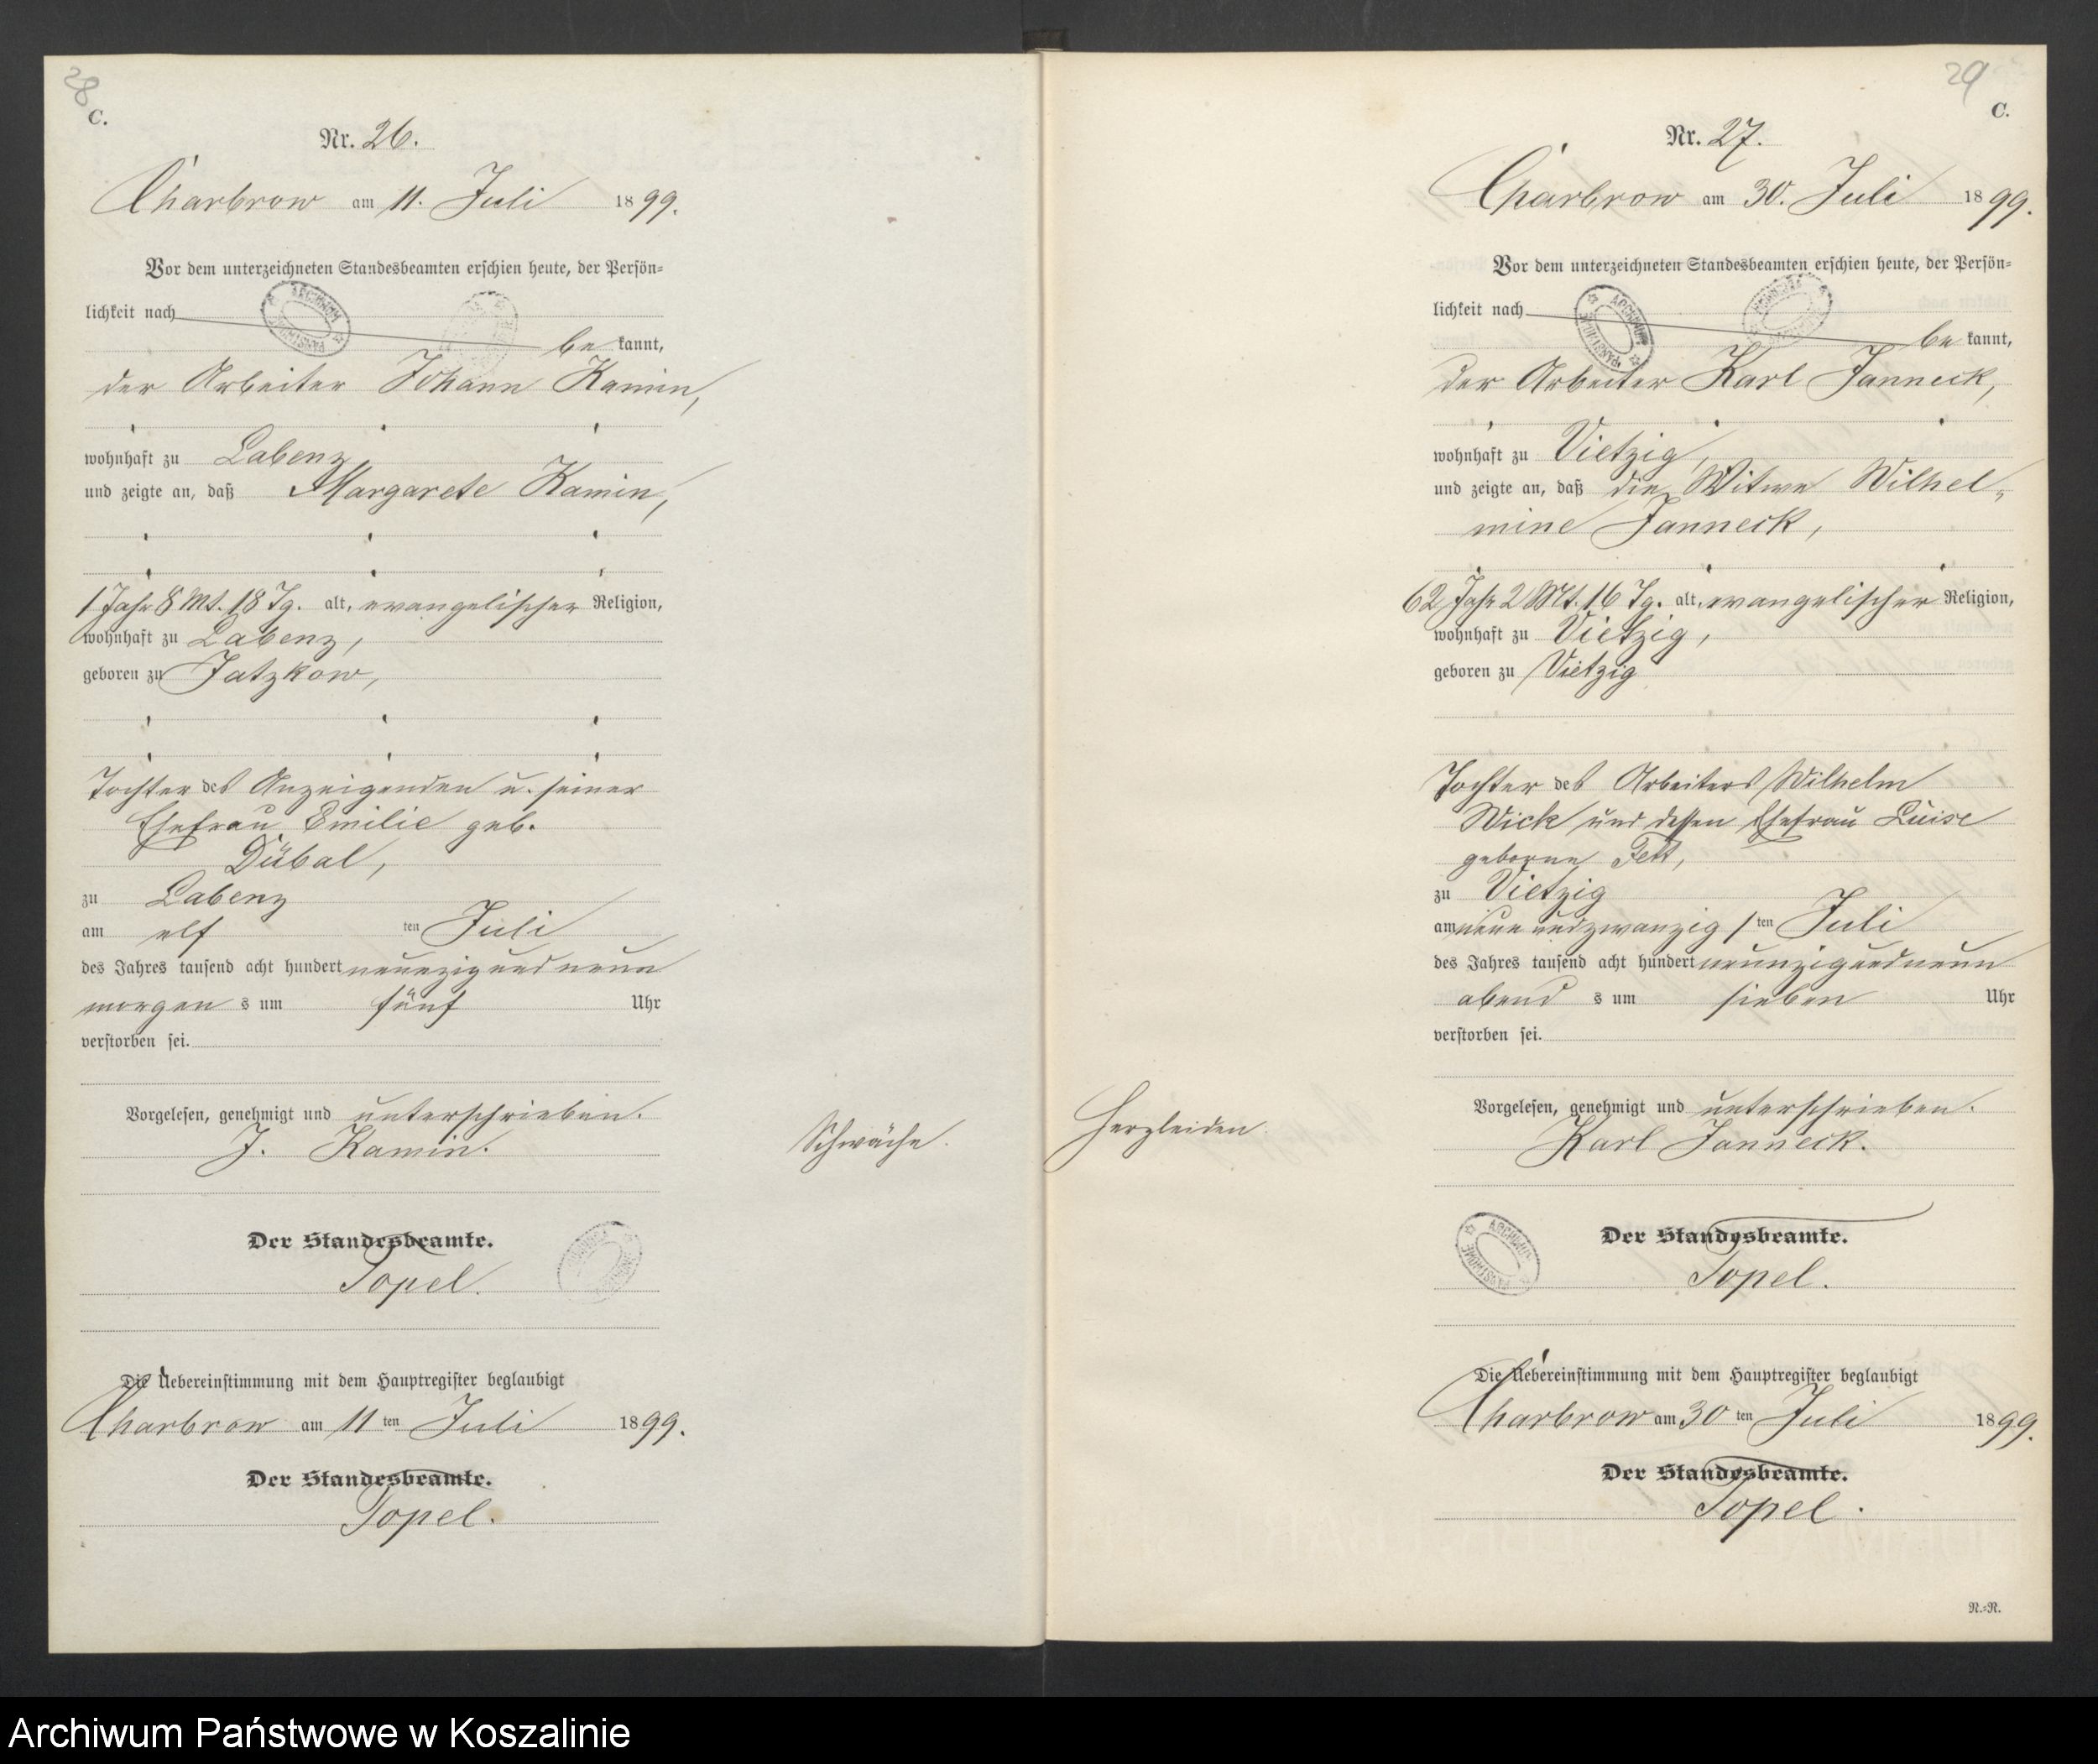 28
C.
Nr. 26.
Charbrow am 11. Juli 1899.
Vor dem unterzeichneten Standesbeamten erschien heute, der Persön-
lichkeit nach
be kannt,
der Arbeiter Johann Kamin,
wohnhaft zu Labenz
und zeigte an, daß Margarete Kamin,
1 Jahr 8 Mt. 18 Tg. alt, evangelischer Religion,
wohnhaft zu Labenz,
geboren zu Jatzkow,
Tochter des Anzeigenden u. seiner
Ehefrau Emilie geb.
Dübal,
zu Labenz
am elf ten Juli
des Jahres tausend acht hundert neunzigundneun
morgen s um fünf Uhr
verstorben sei.
Vorgelesen, genehmigt und unterschrieben.
J. Kamin.
Schwäche.
Der Standesbeamte.
Topel.
Die Uebereinstimmung mit dem Hauptregister beglaubigt
Charbrow am 11 ten Juli 1899.
Der Standesbeamte.
Topel.
29
C.
Nr. 27.
Charbrow am 30. Juli 1899.
Vor dem unterzeichneten Standesbeamten erschien heute, der Persön-
lichkeit nach
be kannt,
der Arbeiter Karl Janneck,
wohnhaft zu Vietzig,
und zeigte an, daß die Witwe Wilhel-
mine Janneck,
62 Jahr 2 Mt. 16 Tg. alt, evangelischer Religion,
wohnhaft zu Vietzig,
geboren zu Vietzig
Tochter des Arbeiters Wilhelm
Wick und dessen Ehefrau Luise
geborne Tett,
zu Vietzig
am neunundzwanzig ten Juli
des Jahres tausend acht hundert neunzigundneun
abend s um sieben Uhr
verstorben sei.
Vorgelesen, genehmigt und unterschrieben.
Herzleiden.
Karl Janneck.
Der Standesbeamte.
Topel.
Die Uebereinstimmung mit dem Hauptregister beglaubigt
Charbrow am 30 ten Juli 1899.
Der Standesbeamte.
Topel.
N.=N.
Archiwum Państwowe w Koszalinie